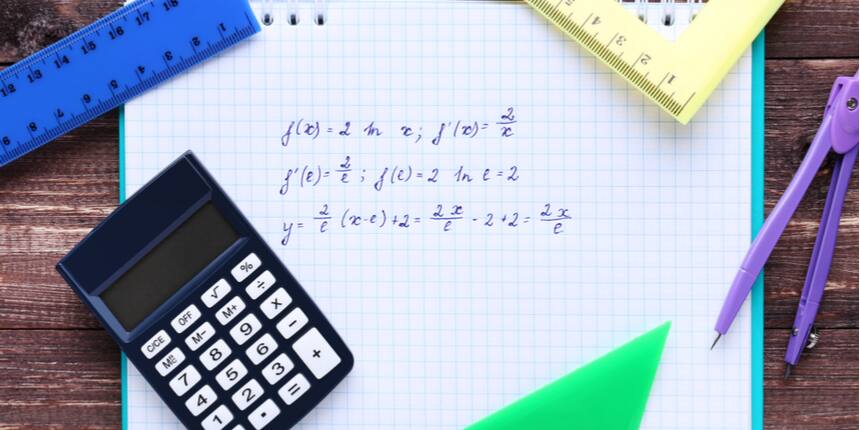 f(x) = 2 ln x; f'(x) = 2/x
f'(e) = 2/e; f(e) = 2 ln e = 2
y = 2/e (x-e) + 2 = 2x/e - 2 + 2 = 2x/e
12 13 14 15 16 17 18
9 8 7 6 5 4 3 2 1
5 4 3 2 1
% ÷ × − +
√ M+ 9 6 3 =
OFF M− 8 5 2 .
C/CE 7 4 1